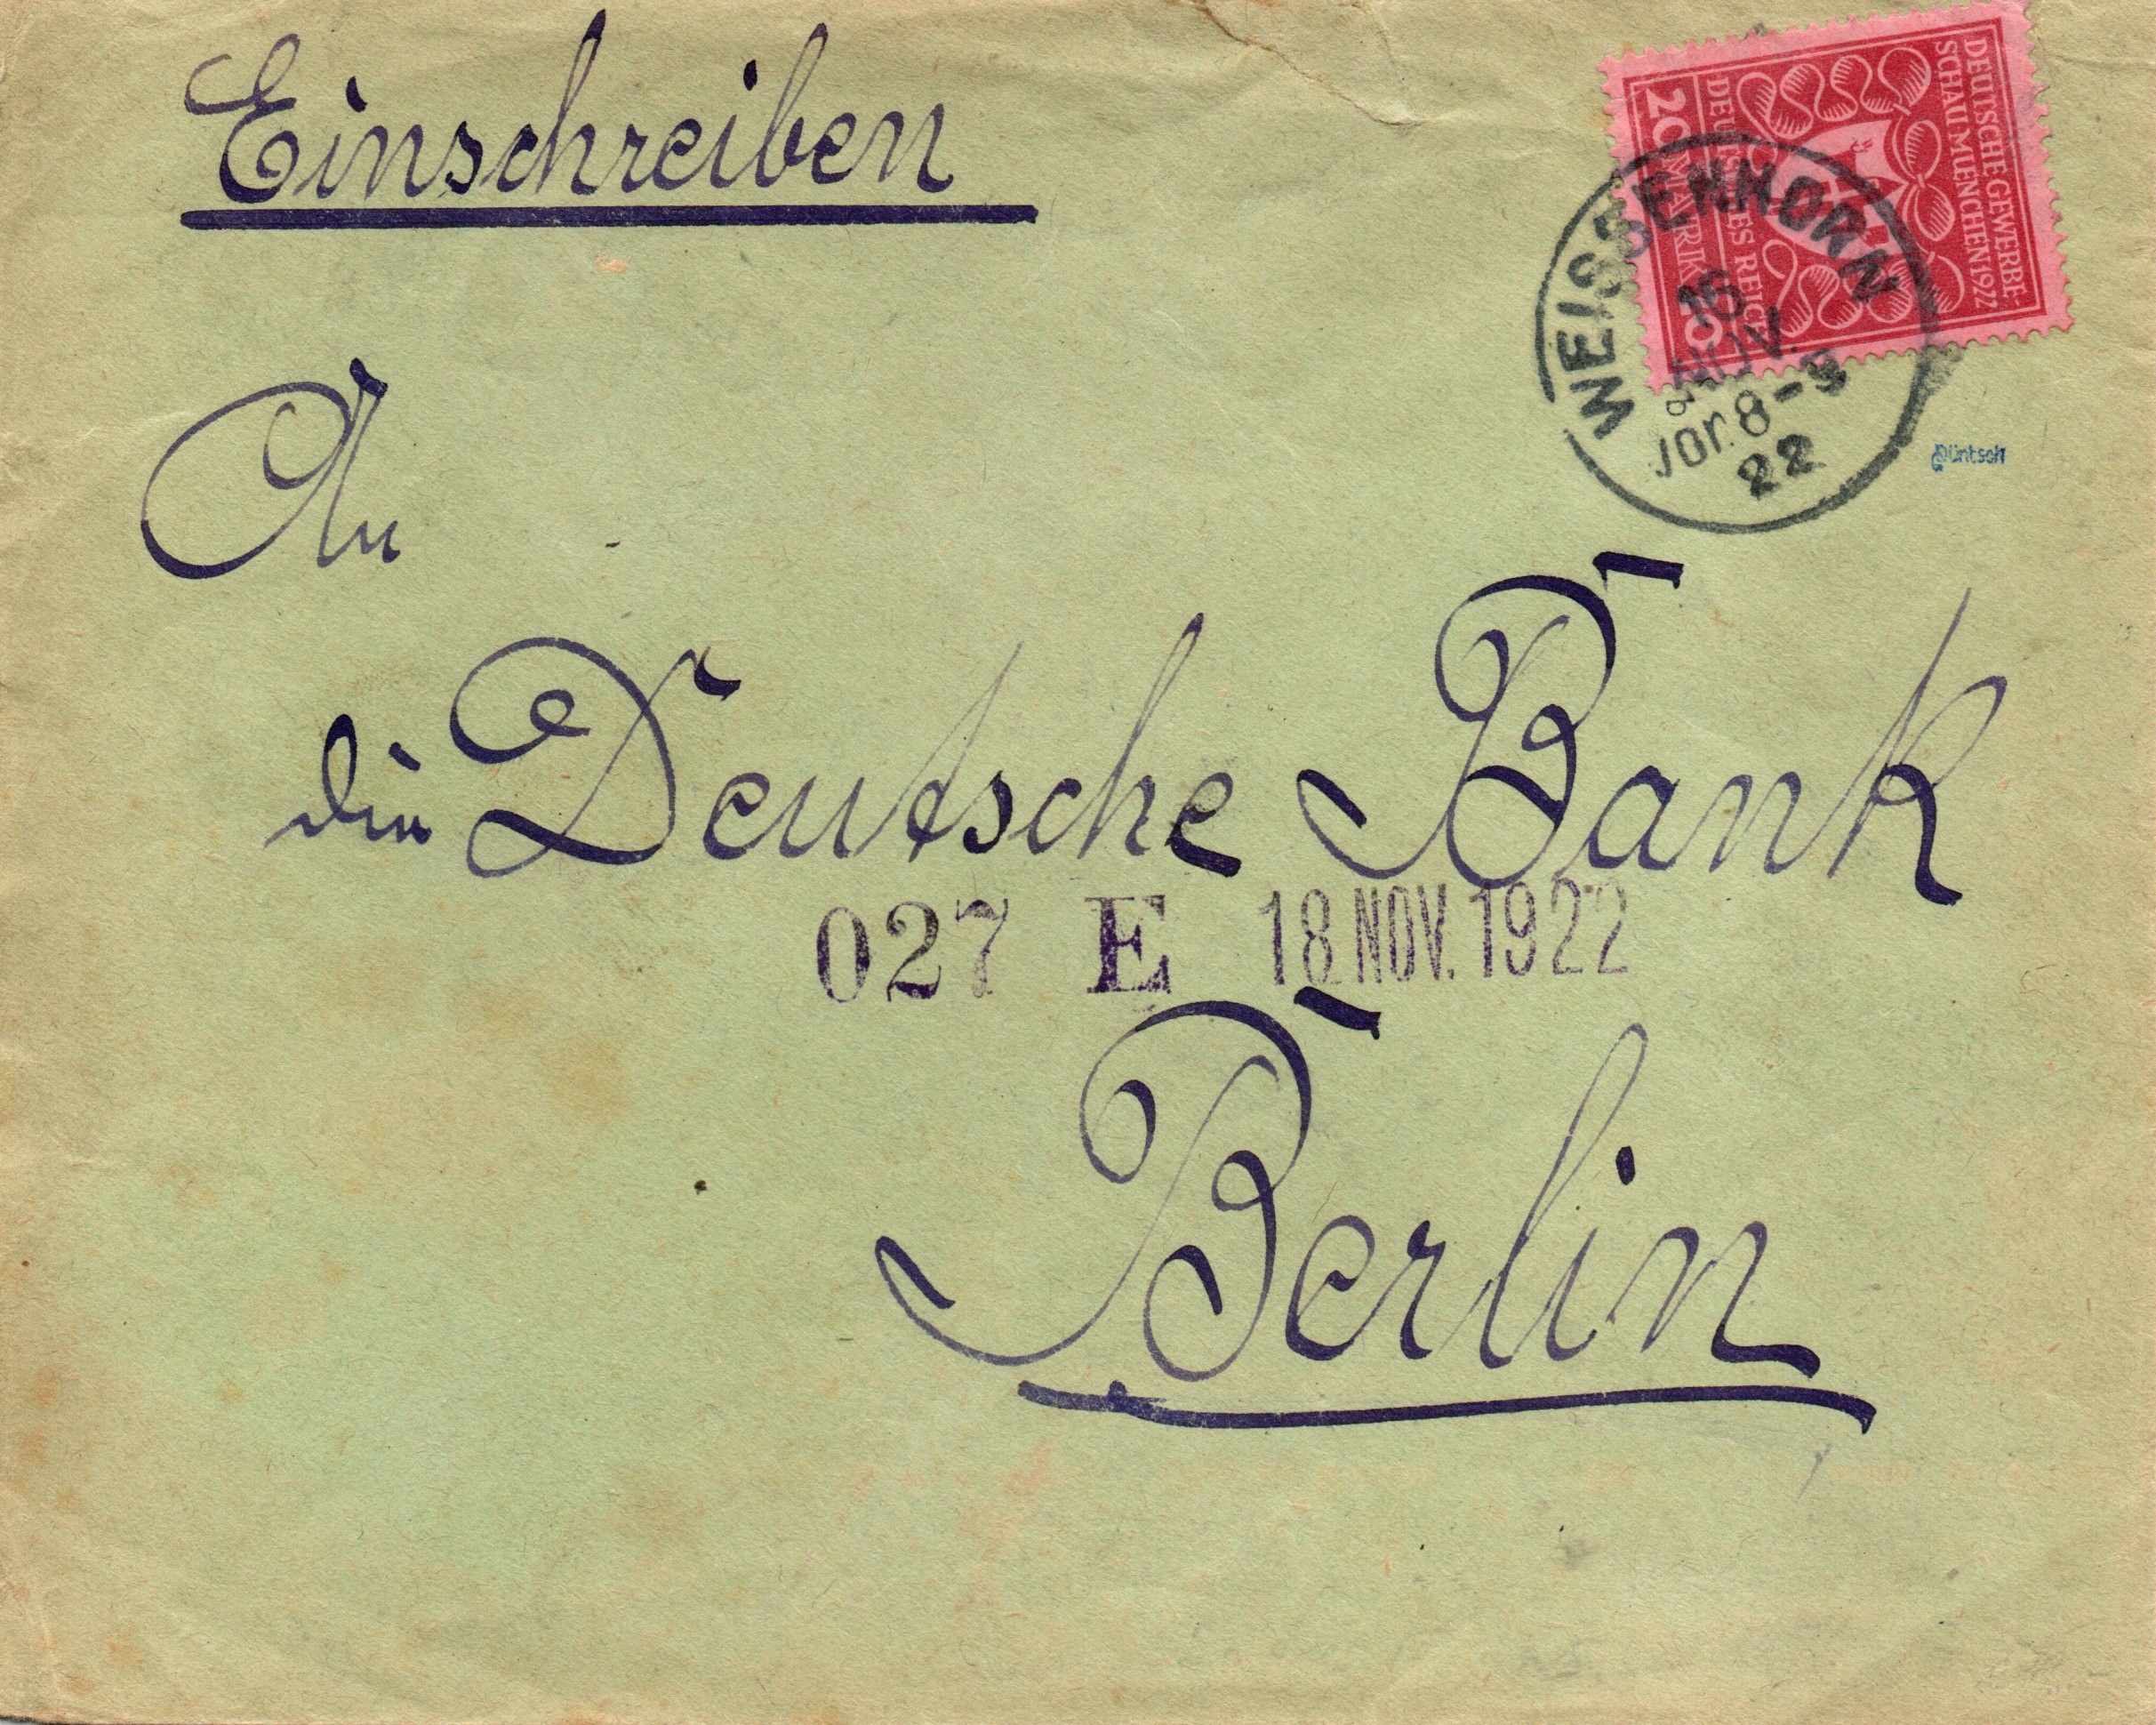 Einschreiben
DEUTSCHE GEWERBE
SCHAU MÜNCHEN 1922
DEUTSCHES REICH
20 MARK 20
WEISSENHORN
16
NOV.
b
Vor. 8-9
22
Püntsch
An
die Deutsche Bank
027 E 18.NOV.1922
Berlin